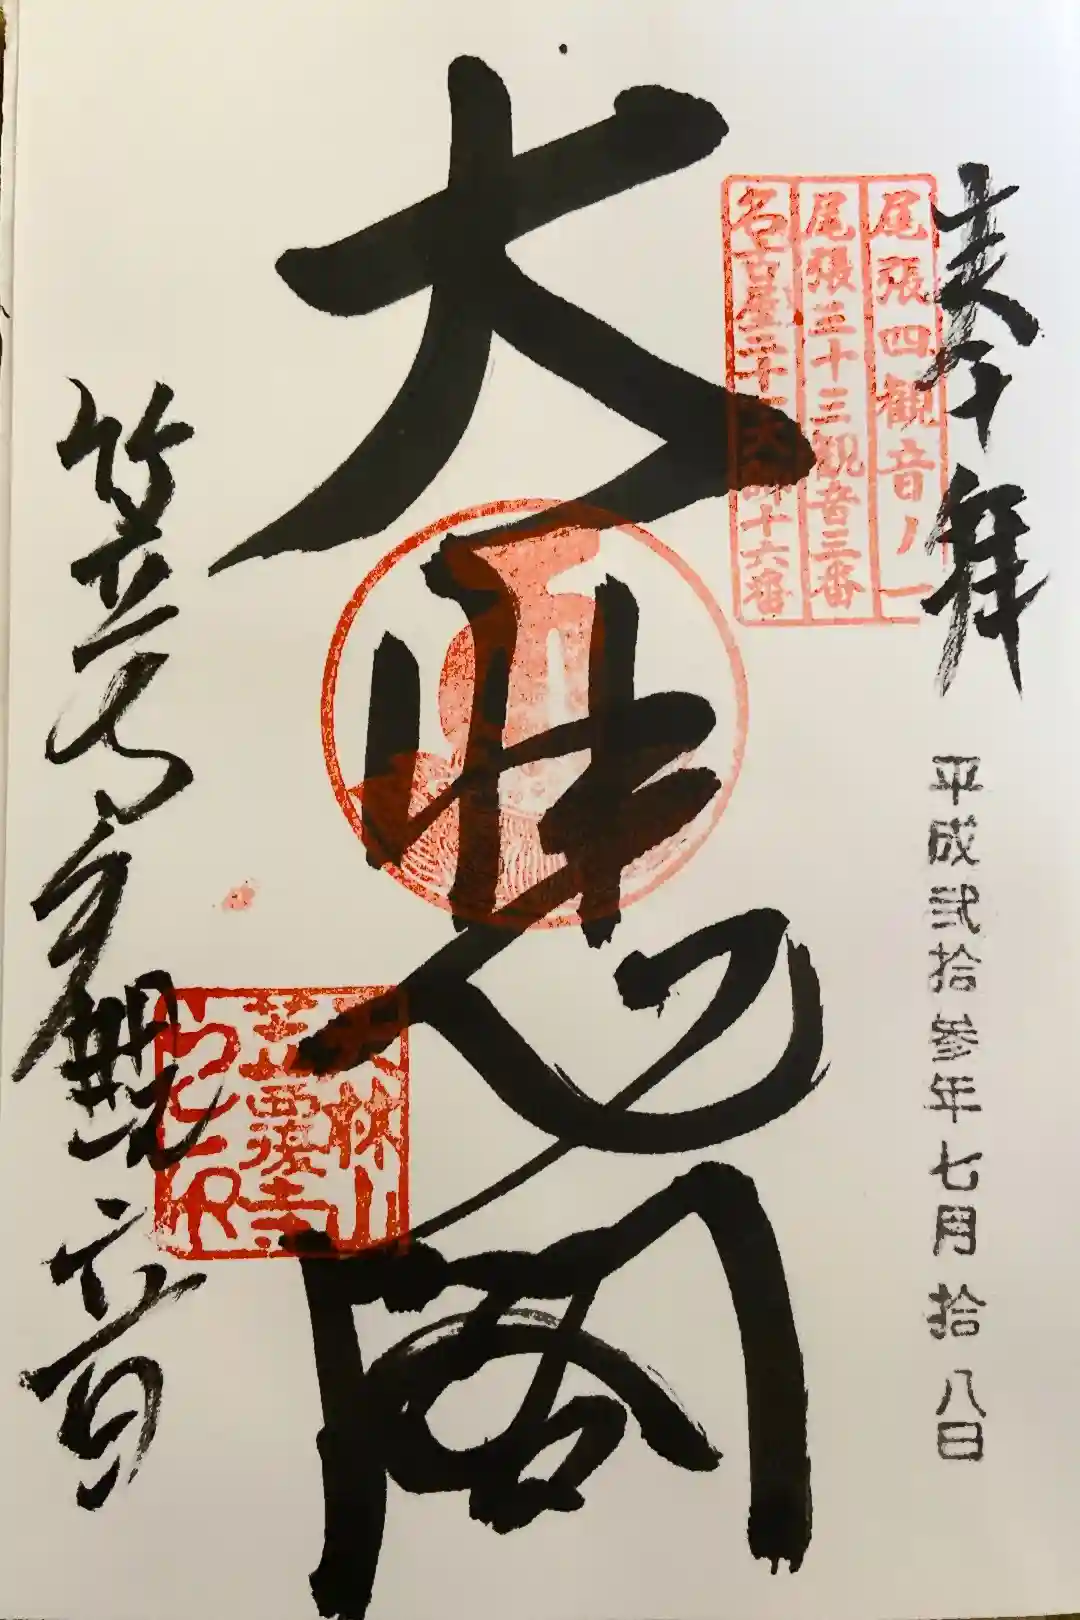 奉拝
平成弐拾参年七月拾八日
尾張四観音ノ一
尾張三十三観音三番
名古屋二十一大師十六番
大悲閣
笠寺観音
天林山
笠覆寺